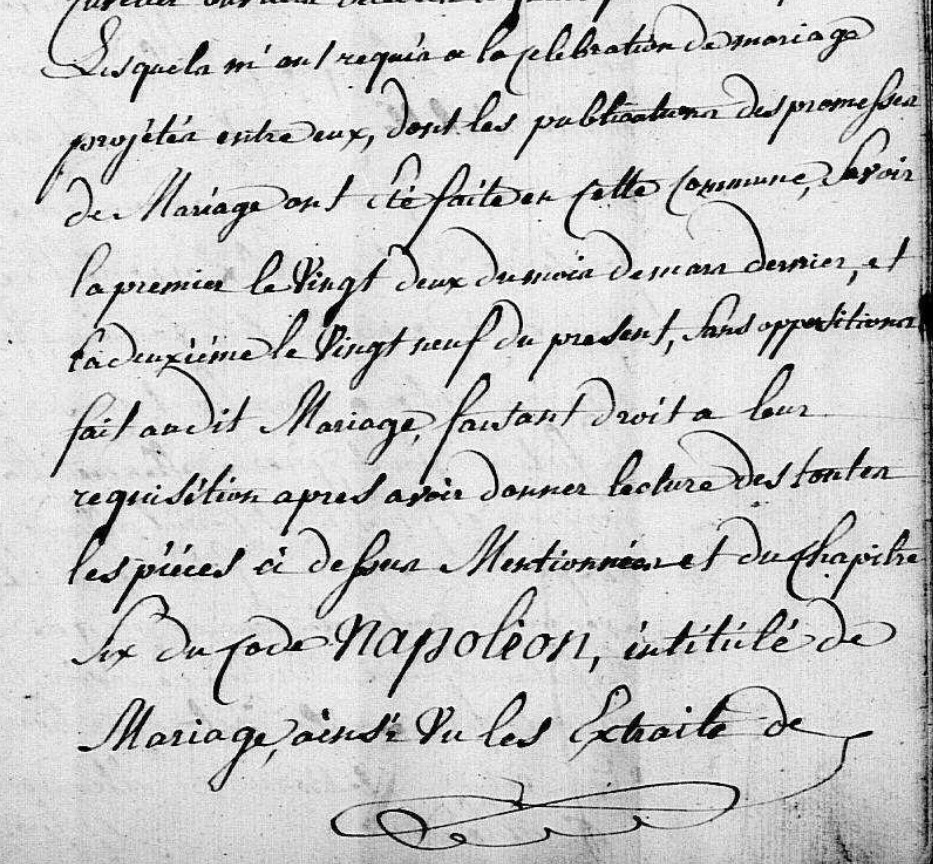 Lesquels m'ont requis a la celebration de mariage
projétés entre eux, dont les publications des promesses
de Mariage ont été faite en Cette Commune, Savoir
la premier le Vingt deux du mois de mars dernier, et
la deuxiéme le Vingt neuf du present, sans oppositions
fait audit Mariage, faisant droit a leur
requisition apres avoir donner lecture des toutes
les piéces ci dessus Mentionnées et du Chapitre
Six du Code Napoléon, intitulé de
Mariage, ainsi Vu les Extraits de